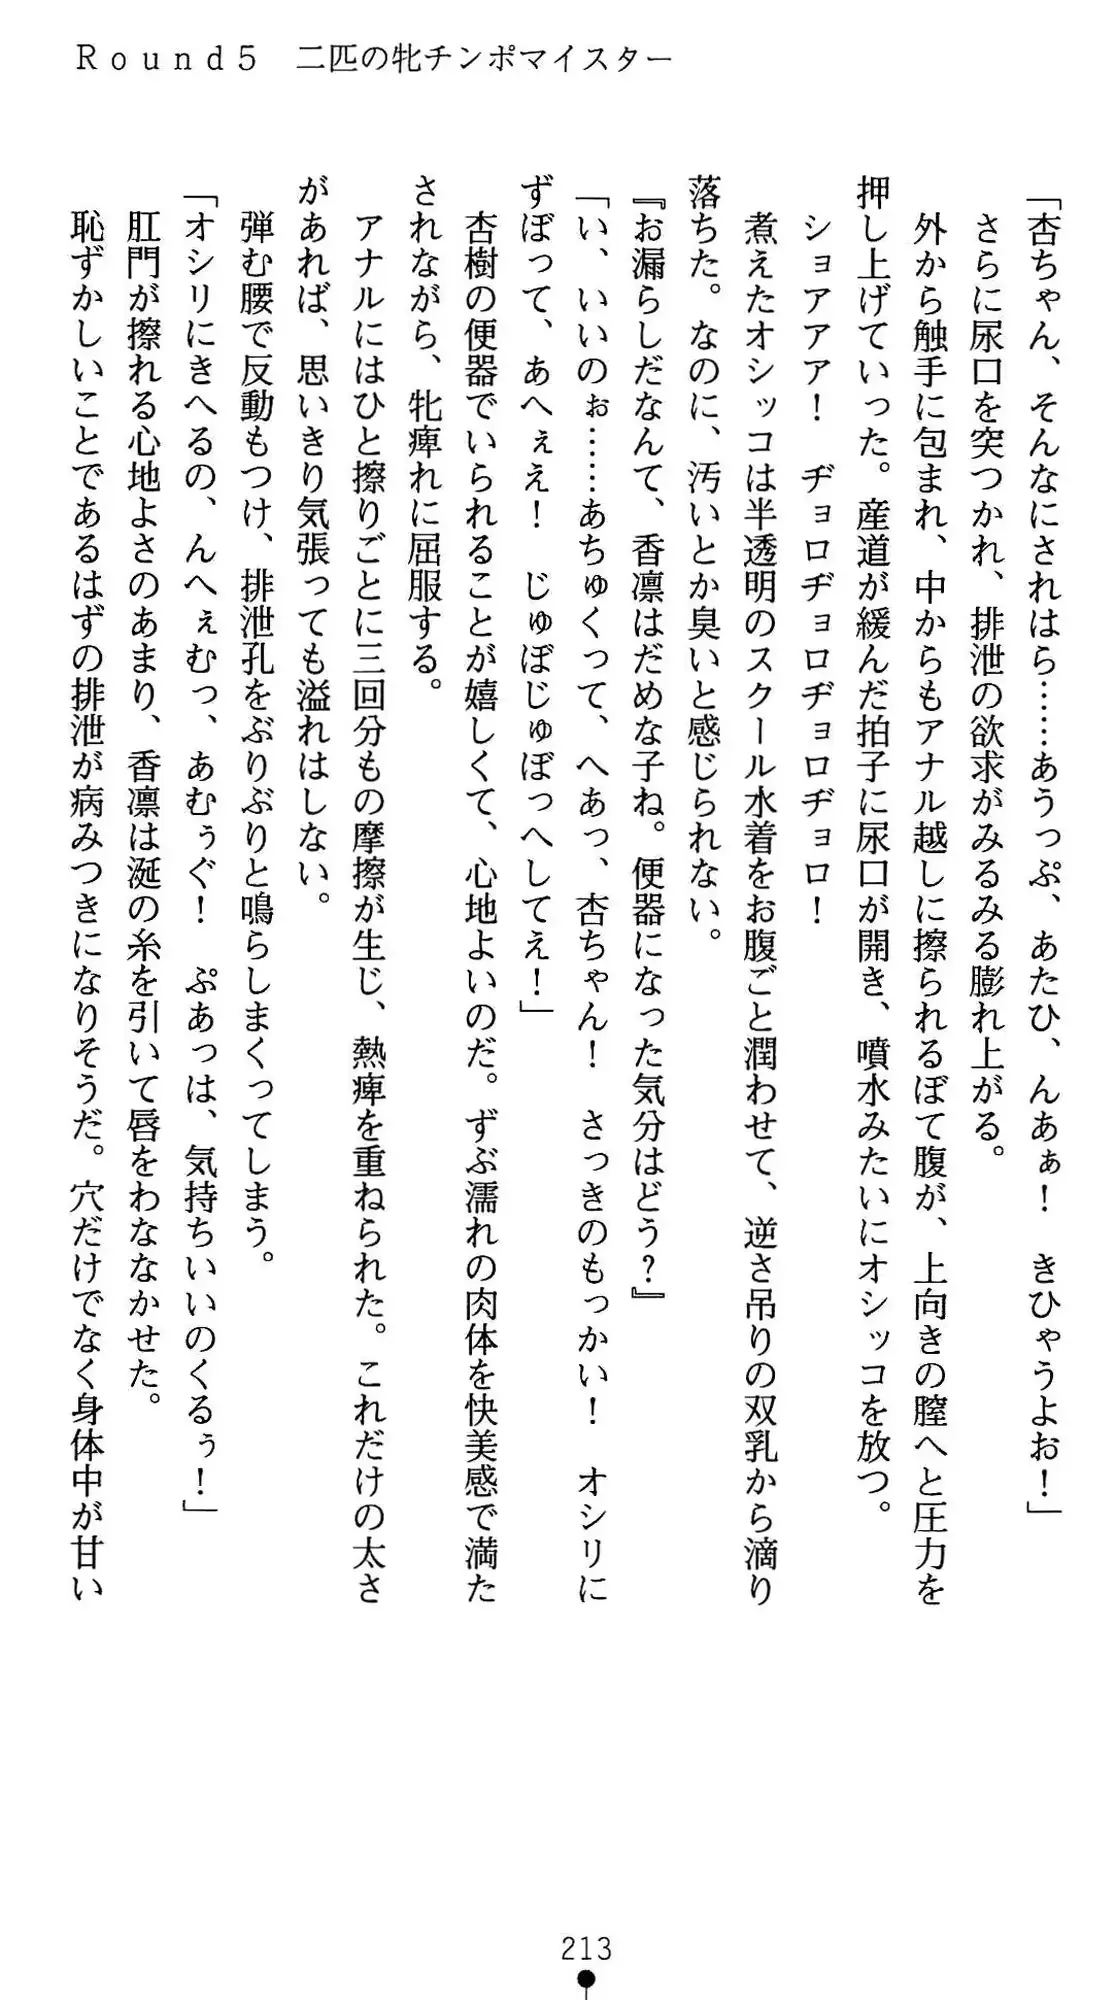 Ｒｏｕｎｄ５　二匹の牝チンポマイスター
「杏ちゃん、そんなにされはら……あうっぷ、あたひ、んあぁ！　きひゃうよお！」
さらに尿口を突つかれ、排泄の欲求がみるみる膨れ上がる。
外から触手に包まれ、中からもアナル越しに擦られるぼて腹が、上向きの膣へと圧力を
押し上げていった。産道が緩んだ拍子に尿口が開き、噴水みたいにオシッコを放つ。
ショアアア！　ヂョロヂョロヂョロヂョロ！
煮えたオシッコは半透明のスクール水着をお腹ごと潤わせて、逆さ吊りの双乳から滴り
落ちた。なのに、汚いとか臭いと感じられない。
『お漏らしだなんて、香凛はだめな子ね。便器になった気分はどう？』
「い、いいのぉ……あちゅくって、へあっ、杏ちゃん！　さっきのもっかい！　オシリに
ずぼって、あへぇえ！　じゅぼじゅぼっへしてえ！」
杏樹の便器でいられることが嬉しくて、心地よいのだ。ずぶ濡れの肉体を快美感で満た
されながら、牝痺れに屈服する。
アナルにはひと擦りごとに三回分もの摩擦が生じ、熱痺を重ねられた。これだけの太さ
があれば、思いきり気張っても溢れはしない。
弾む腰で反動もつけ、排泄孔をぶりぶりと鳴らしまくってしまう。
「オシリにきへるの、んへぇむっ、あむぅぐ！　ぷあっは、気持ちいいのくるぅ！」
肛門が擦れる心地よさのあまり、香凛は涎の糸を引いて唇をわななかせた。
恥ずかしいことであるはずの排泄が病みつきになりそうだ。穴だけでなく身体中が甘い
213